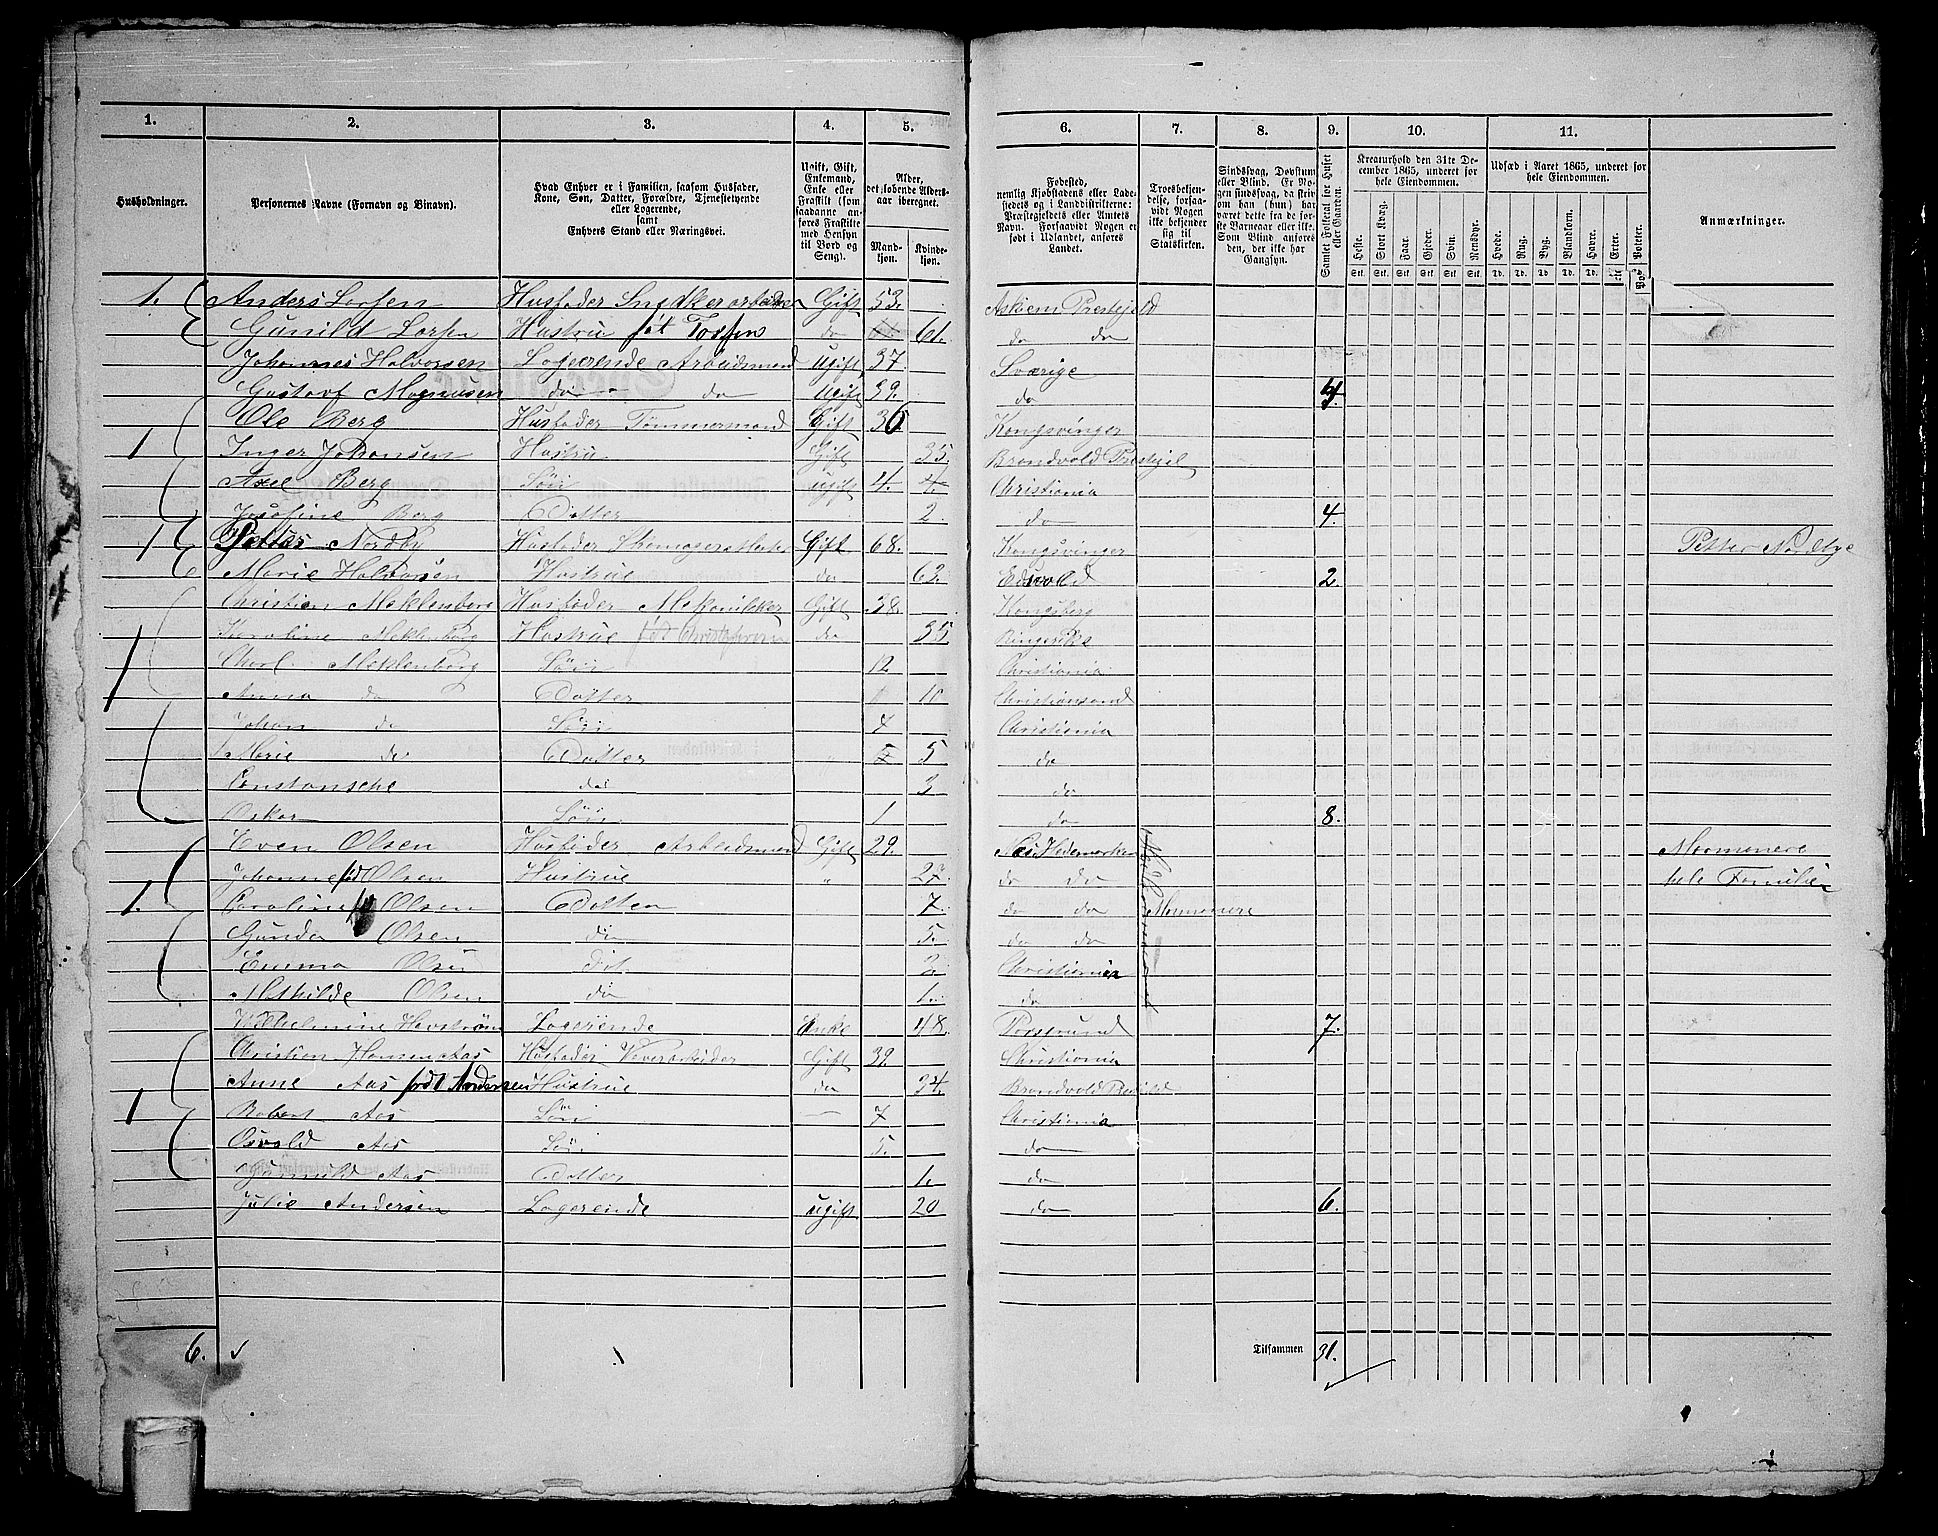 1. 2. 3. 4. 5. 6. 7. 8. 9. 10. 11.
Husholdninger.
Personernes Navne (Fornavn og Binavn).
Hvad Enhver er i Familien, saasom Husfader, Kone, Søn, Datter, Forældre, Tjenestetyende eller Logerende, samt Enhvers Stand eller Næringsvei.
Ugift, Gift, Enkemand, Enke eller Fraskilt (som saadanne anføres Fraskilte med Hensyn til Bord og Seng).
Alder, det løbende Aldersaar iberegnet.
Mandkjøn. Kvindekjøn.
Fødested, nemlig Kjøbstadens eller Ladestedets og i Landdistrikterne: Præstegjeldets eller Amtets Navn. Forsaavidt Nogen er født i Udlandet, anføres Landet.
Troesbekjendelse, forsaavidt Nogen ikke bekjender sig til Statskirken.
Sindssvag, Døvstum eller Blind. Er Nogen sindssvag, da skrives om han (hun) har været dette fra de første Barneaar eller ikke. Som Blind anføres den, der ikke har Gangsyn.
Samlet Folketal for Huset eller Gaarden.
Kreaturhold den 31te December 1865, underet for hele Eiendommen.
Heste. Stort Kvæg. Faar. Gjeder. Svin. Rensdyr.
Udsæd i Aaret 1865, underet for hele Eiendommen.
Hvede. Rug. Byg. Blandkorn. Havre. Erter. Poteter.
Anmærkninger.
Stk. Stk. Stk. Stk. Stk. Stk. Td. Td. Td. Td. Td.
1. Anders Larsen Husfader Snedkerarbeider Gift 53. Askiem Prestejeld
Gunild Larsen Hustru føt do 61. do do
Johannes Halvorsen Logerende Arbeidsmand ugift 37. Sværige
Gustavf Magnusen do do ugift 39. do 4.
Ole Berg Husfader Tømmermand Gift 36 Kongsvinger
1 Inger Johansen Hustru Gift 35 Brandvold Prestgjel
Axel Berg Sön ugift 4. 4. Christiania
Josefine Berg Datter 2. do 4.
1 Nordby Husfader Gift 68. Kongsvinger Petter Nordbye
Marie Halvorsen Hustrue do 62. Edsvold 2.
Christian Meklenborg Husfader Gift 38. Kongsberg
1 Karoline Meklenborg Hustrue do 35 Ringerike
Charl Meklenborg Sön 12 Christiania
Anna do Datter 10 Christiansand
Johan do Sön 7 Christiania
Marie do Datter 5 do
Constansche do 3 do
Oskar Sön 1 do 8.
Even Olsen Husfader Arbeidsmand Gift 29. Næs Hedemarken Mormonere
Johanne Olsen Hustrue " 27. do do hele Familien
1. Caroline Olsen Datter 7. do do Mormonere
Gunda Olsen do 5. do do
Emma Olsen do Christiania
Mathilde Olsen do 1. do
Vilhelmine Logerende Enke 48. Porsgrund 7.
Christian Hansen Aas Husfader Væverarbeider Gift 39. Christiania
Anne Aas født Andersen Hustrue do 34. Brandvold
1 Robert Aas Sön 7 Christiania
Osvald Aas Sön 5. do
Gunnild Aas Datter 1. do
Julie Andersen Logerende ugift 20 do 6.
6. Tilsammen 31.